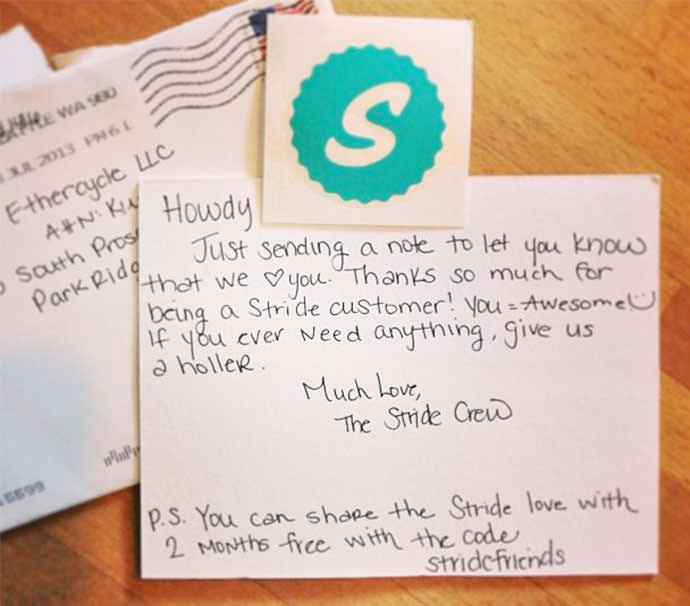 SEATTLE WA 980
JUL 2013 PM 6 L
Ethercycle LLC
Attn:
South
Park
S
Howdy
Just sending a note to let you know
that we ♡ you. Thanks so much for
being a Stride customer! You = Awesome!
If you ever need anything, give us
a holler.
Much Love,
The Stride Crew
P.S. You can share the Stride love with
2 months free with the code
stridefriends